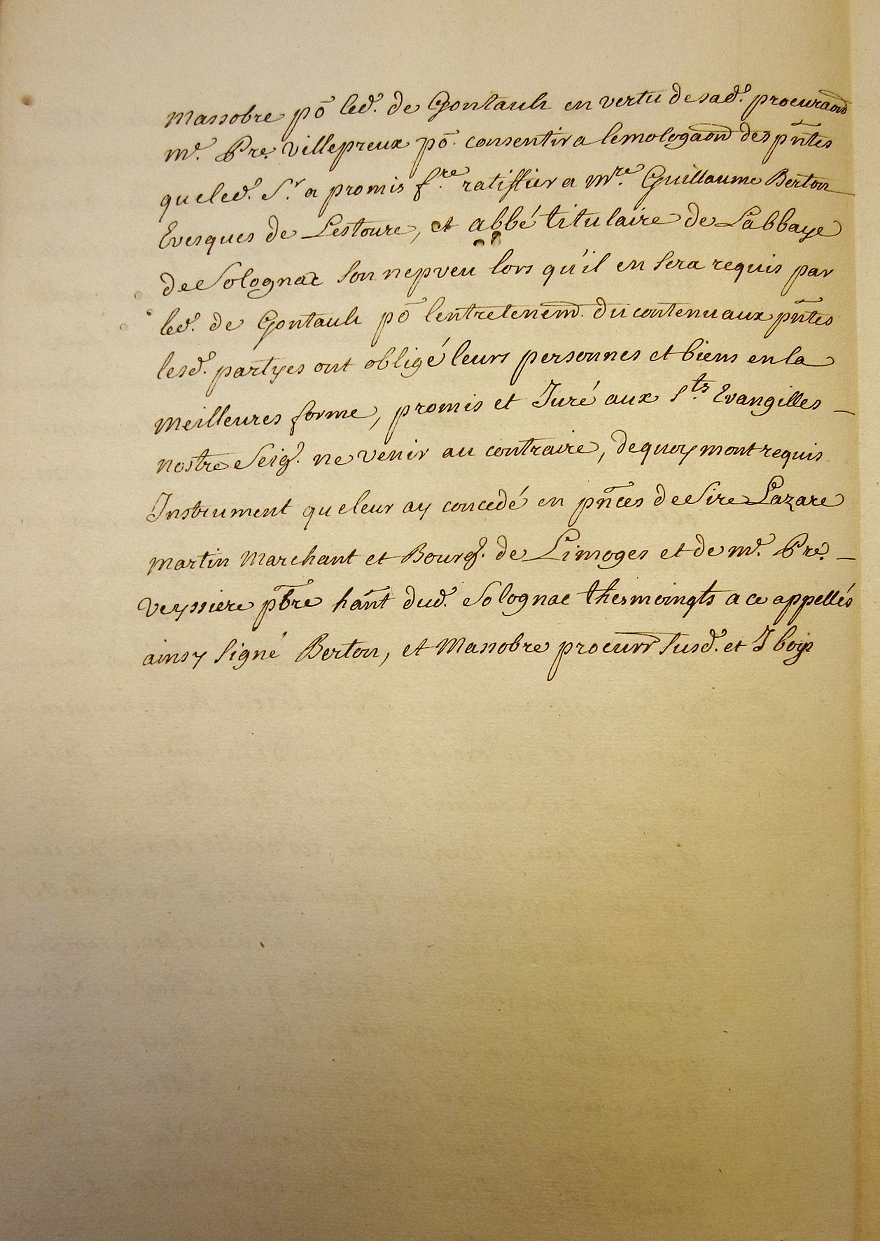 Massobre põ led. de Gontault en vertu de sad. procuraõn
mr. Pre. Villepreux põ. consentir a lemologaõn des pñtes
que led. Sr. a promis fre. ratiffier a mre. Guillaume Berton
Evesques de Lestoure, et abbé titulaire de Labbaye
de Solognac son nepveu lors qu'il en sera requis par
led. de Gontault põ lentretenem̃. du contenu aux pñtes
lesd. partyes ont obligé leurs personnes et biens en la
meilleures forme, promis et Juré aux Sts Evangilles —
nostre Seigr. ne venir au contraire, de quoy mont requis
Instrument que leur ay concedé en pñces de Sire Lazare
martin Marchant et Bourg. de Limoges et de mr. Pre. —
Veyssiere pbre hañt dud. Solognac thesmoingts a ce appellés
ainsy signé Berton, et Massobre procurr susd. et